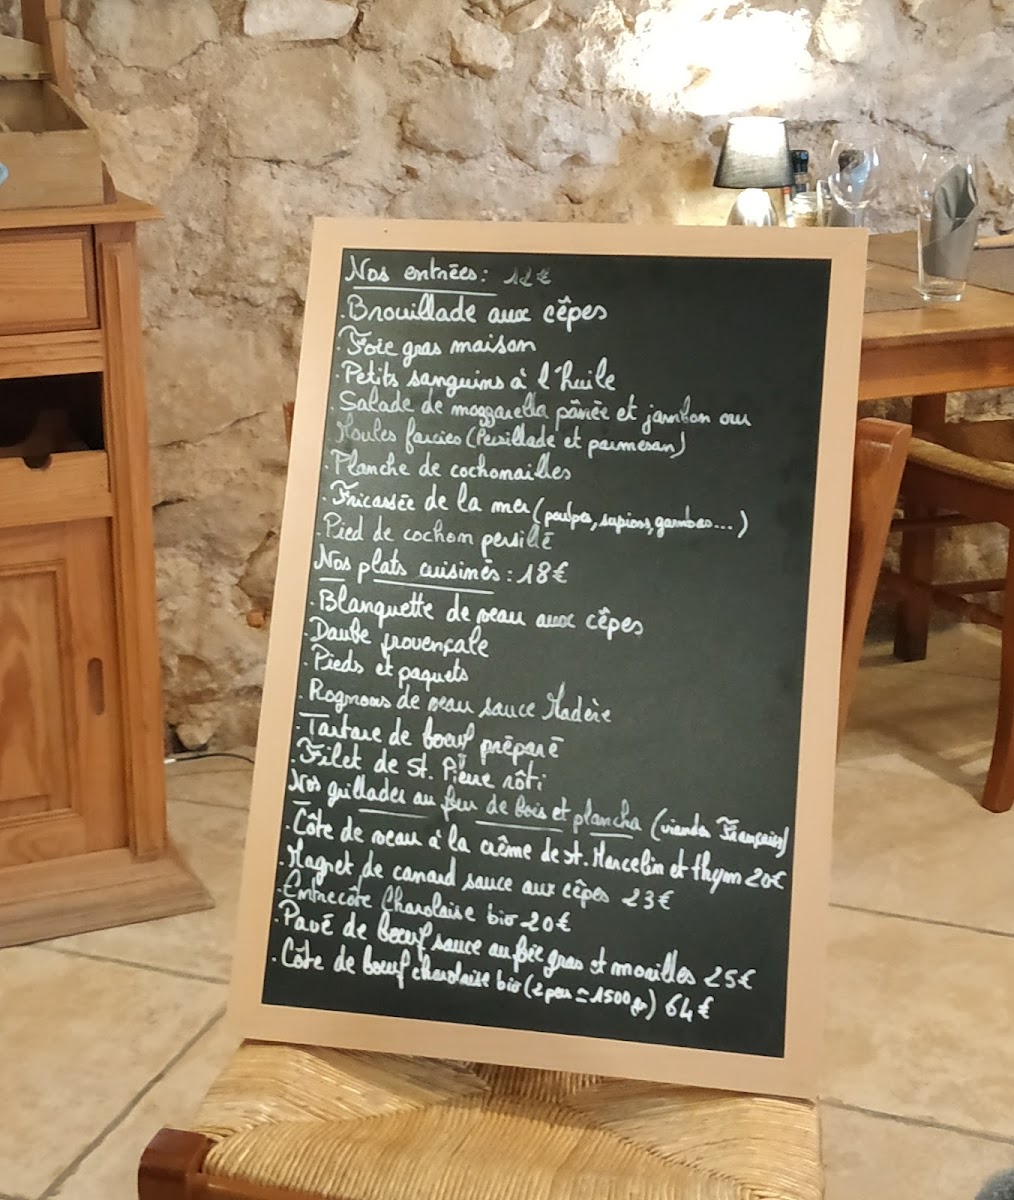 Nos entrées: 12€
. Brouillade aux cêpes
. Foie gras maison
. Petits sanguins à l'huile
. Salade de mozzarella pânée et jambon cru
. Moules farcies (Persillade et parmesan)
. Planche de cochonailles
. Fricassée de la mer (poulpes, supions, gambas...)
. Pied de cochon persillé
Nos plats cuisinés: 18€
. Blanquette de veau aux cêpes
. Daube provençale
. Pieds et paquets
. Rognons de veau sauce Madère
. Tartare de boeuf préparé
. Filet de St. Pierre rôti
Nos grillades au feu de bois et plancha (viandes Françaises)
. Côte de veau à la crême de st. Marcelin et thym 20€
. Magret de canard sauce aux cêpes 23€
. Entrecôte Charolaise bio 20€
. Pavé de boeuf sauce au foie gras et morilles 25€
. Côte de boeuf charolaise bio (2 pers = 1500gr) 64€